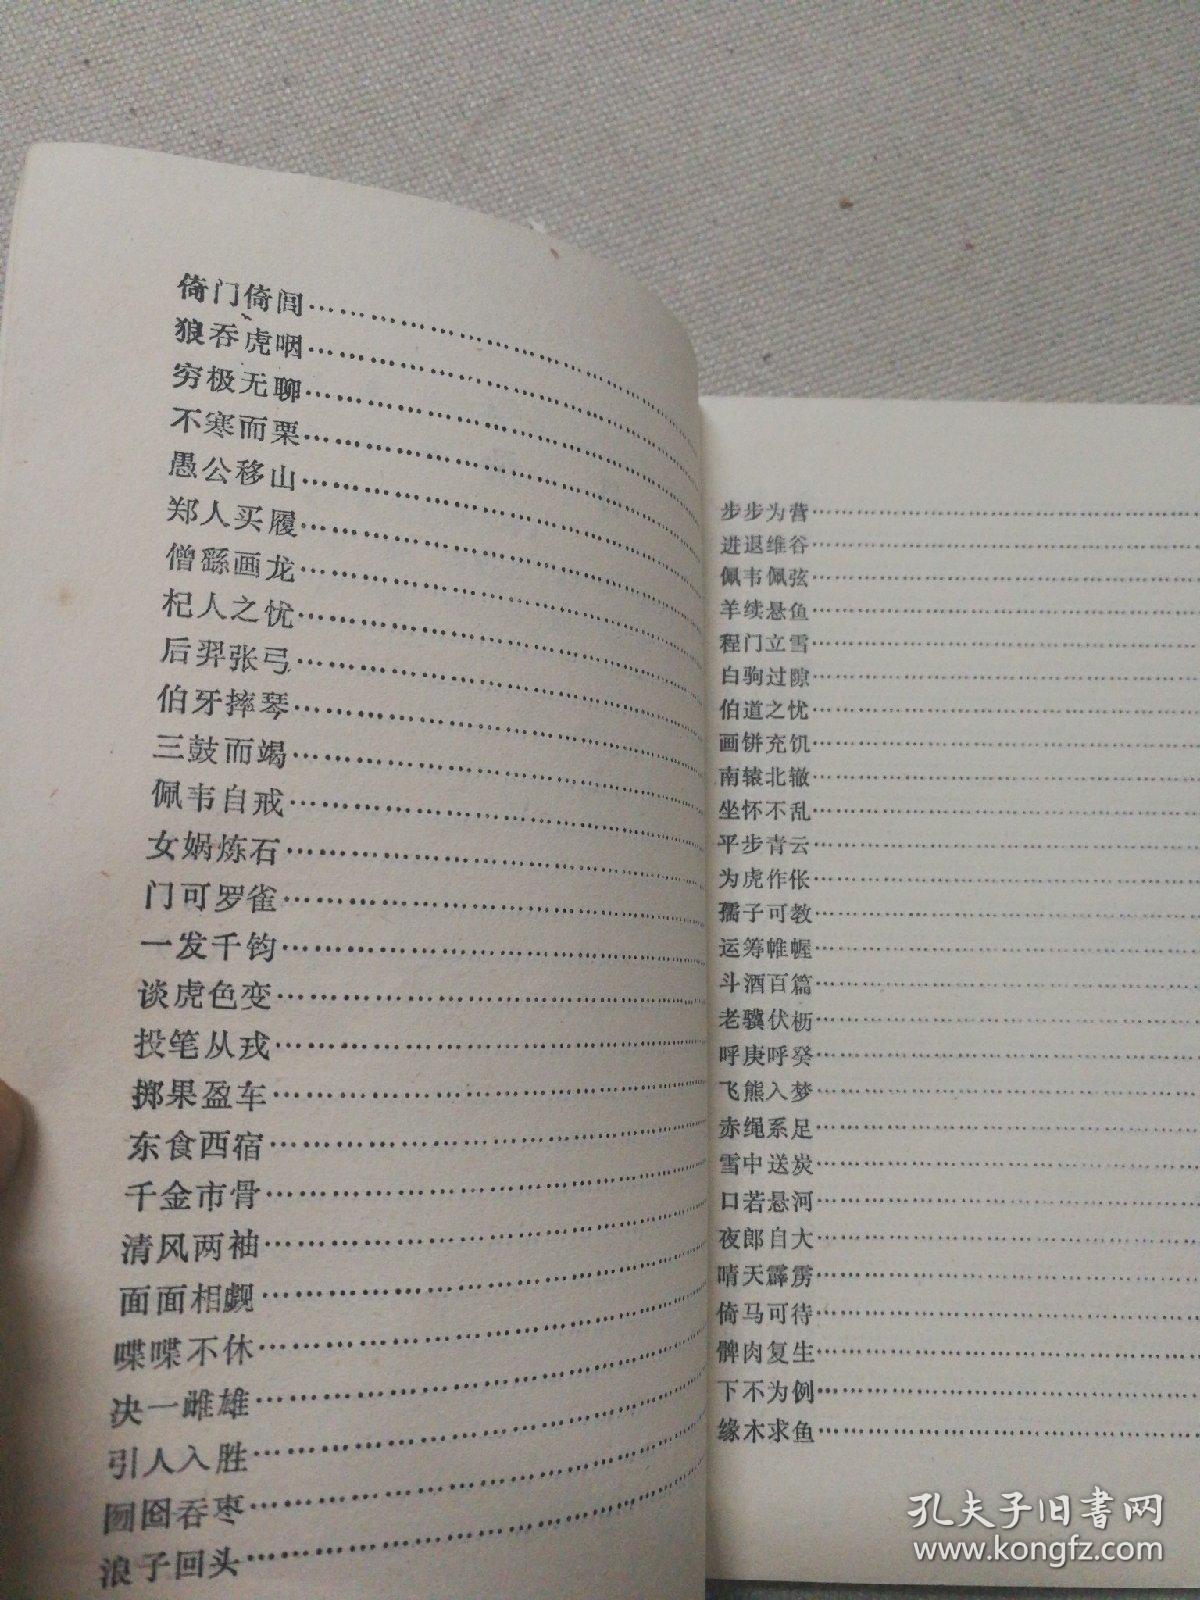 倚门倚闾
狼吞虎咽
穷极无聊
不寒而栗
愚公移山
郑人买履
僧繇画龙
杞人之忧
后羿张弓
伯牙摔琴
三鼓而竭
佩韦自戒
女娲炼石
门可罗雀
一发千钧
谈虎色变
投笔从戎
掷果盈车
东食西宿
千金市骨
清风两袖
面面相觑
喋喋不休
决一雌雄
引人入胜
囫囵吞枣
浪子回头
步步为营
进退维谷
佩韦佩弦
羊续悬鱼
程门立雪
白驹过隙
伯道之忧
画饼充饥
南辕北辙
坐怀不乱
平步青云
为虎作伥
孺子可教
运筹帷幄
斗酒百篇
老骥伏枥
呼庚呼癸
飞熊入梦
赤绳系足
雪中送炭
口若悬河
夜郎自大
晴天霹雳
倚马可待
髀肉复生
下不为例
缘木求鱼
孔夫子旧书网
www.kongfz.com